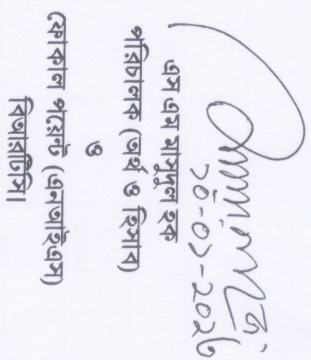 ২০-০১-২০২৬
এস এম মাসুদুল হক
পরিচালক (অর্থ ও হিসাব)
ও
ফোকাল পয়েন্ট (এনআইএস)
বিআরটিসি।